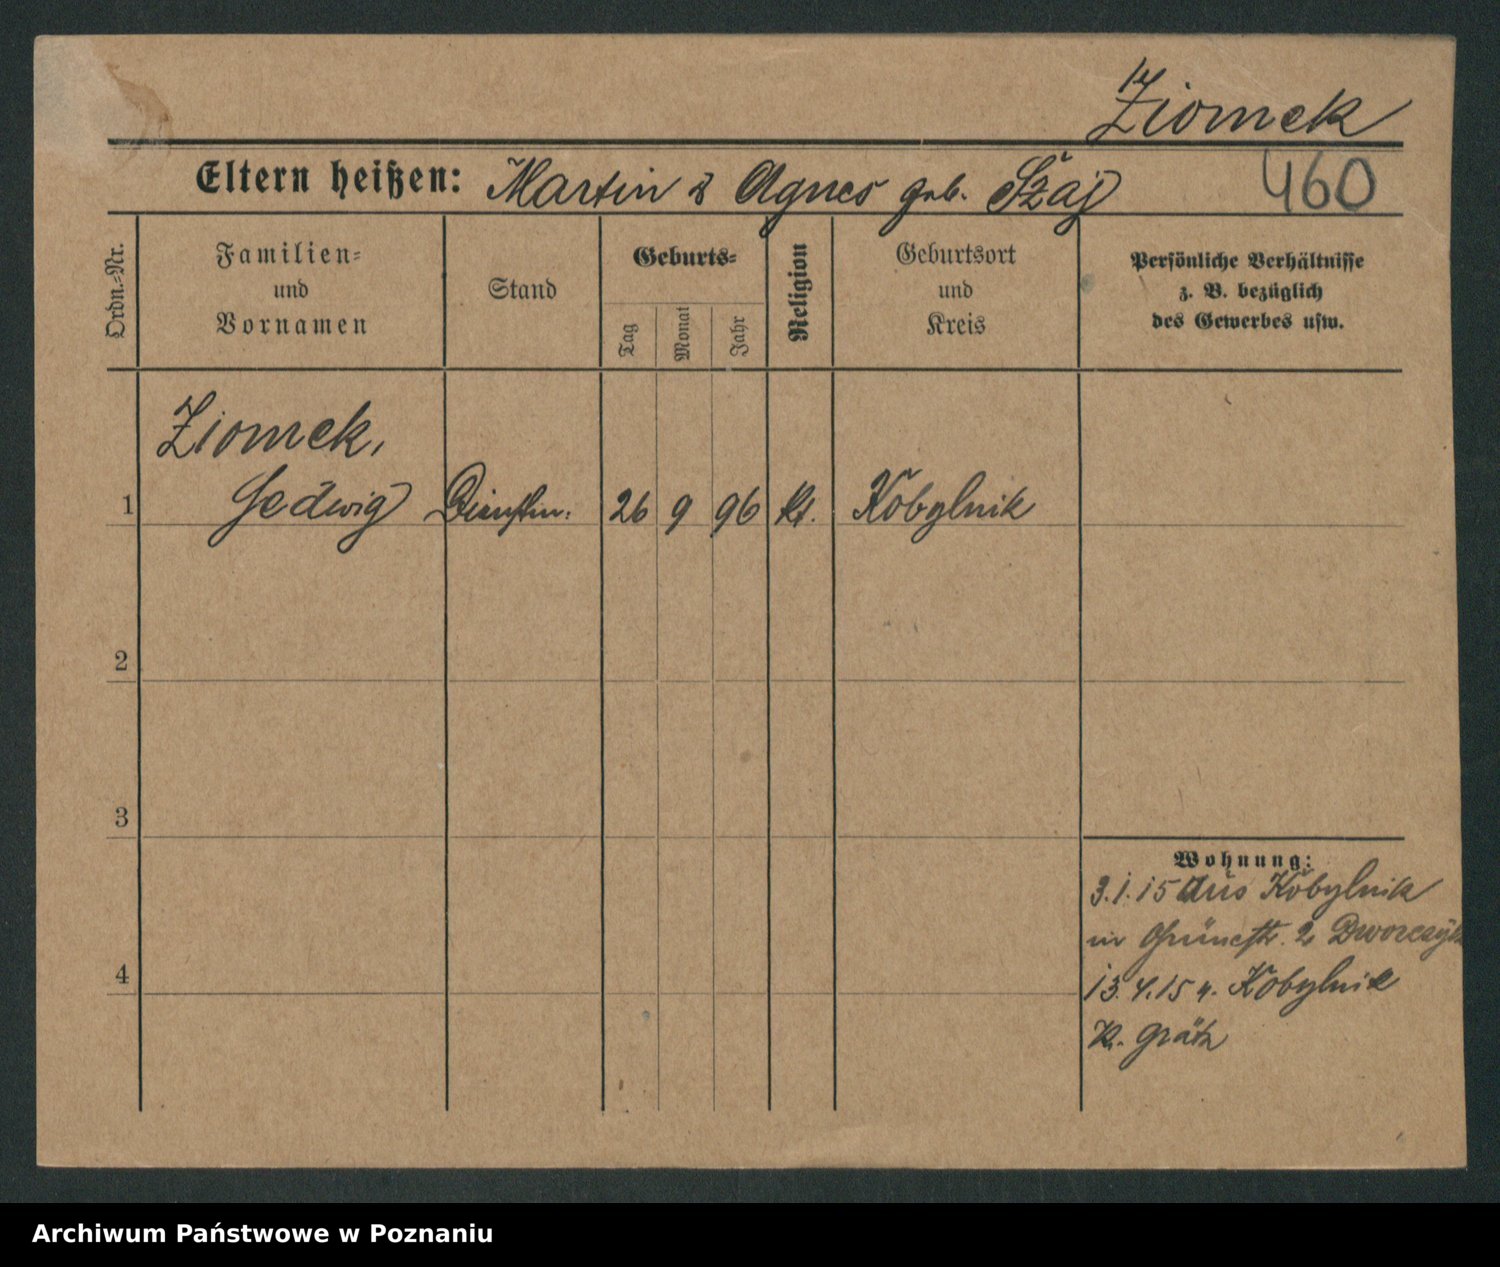 Ziomek
Eltern heißen: Martin & Agnes geb. Szaj
460
Ordn.-Nr.
Familien- und Vornamen
Stand
Geburts-
Tag
Monat
Jahr
Religion
Geburtsort und Kreis
Persönliche Verhältnisse
z. B. bezüglich
des Gewerbes usw.
Ziomek,
1 Hedwig Dienstm. 26 9 96 kt. Kobylnik
2
3
4
Wohnung:
3.1.15 aus Kobylnik
in Grünestr. 2 Dworczyk
13.4.15 n. Kobylnik
Kr. Grätz
Archiwum Państwowe w Poznaniu